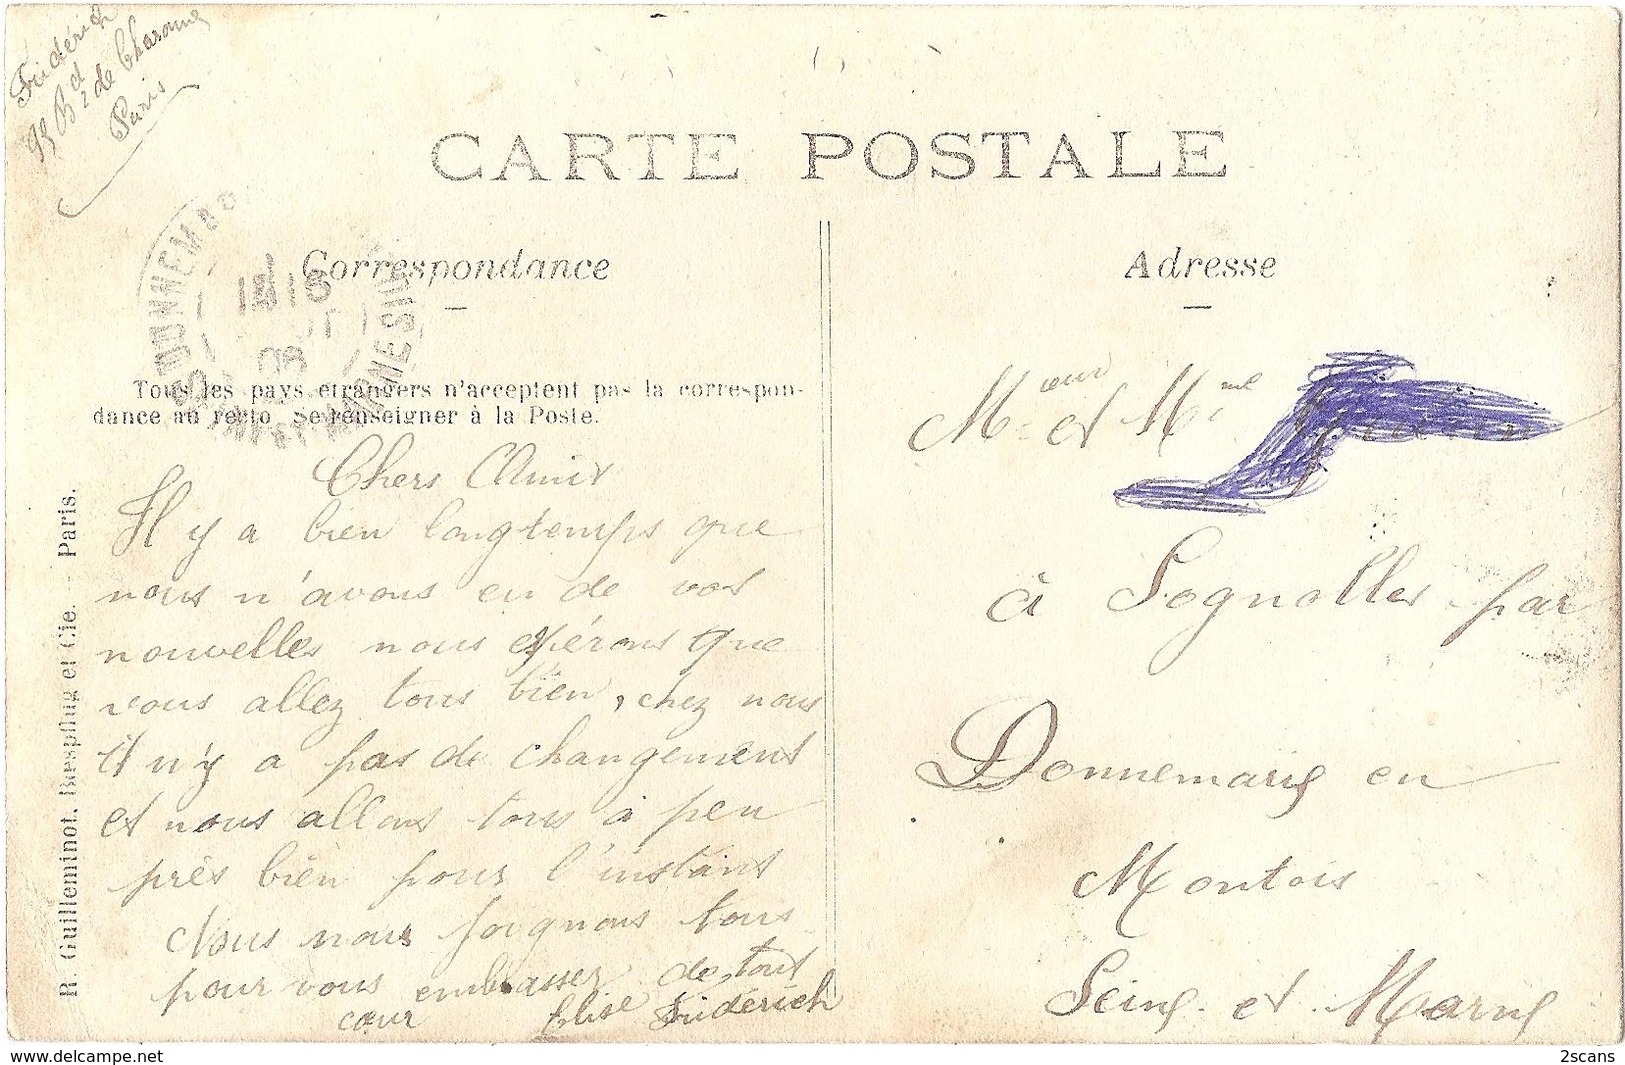 Fridérich
95 Bd de Charonne
Paris
CARTE POSTALE
Correspondance
Adresse
Tous les pays étrangers n'acceptent pas la correspon-
dance au recto. Se renseigner à la Poste.
R. Guilleminot, Bœspflug et Cie. - Paris.
DONNEMA
08
SEINE ET MARNE
Chers Amis
Il y a bien longtemps que
nous n'avons eu de vos
nouvelles nous espérons que
vous allez tous bien, chez nous
il n'y a pas de changement
et nous allons tous à peu
près bien pour l'instant
Nous nous joignons tous
pour vous embrasser de tout
cœur Elise Fridérich
Mr et Mme
à Sognolles par
Donnemarie en
Montois
Seine et Marne
2scans